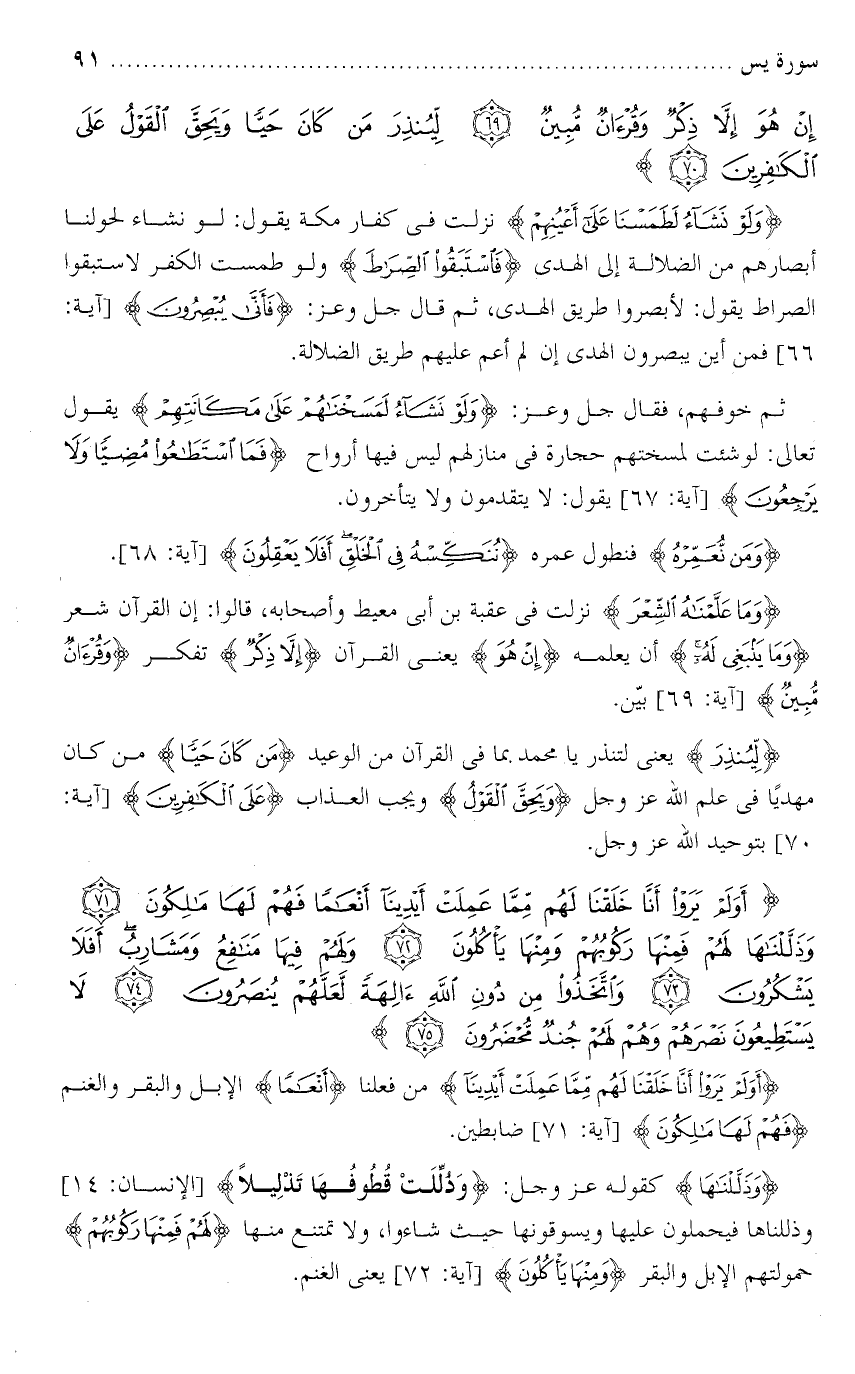 سورة يس ........................................................................ ٩١
إِنْ هُوَ إِلَّا ذِكْرٌ وَقُرْءَانٌ مُّبِينٌ ٦٩ لِّيُنذِرَ مَن كَانَ حَيًّا وَيَحِقَّ ٱلْقَوْلُ عَلَى
ٱلْكَٰفِرِينَ ٧٠ ﴾
﴿وَلَوْ نَشَآءُ لَطَمَسْنَا عَلَىٰٓ أَعْيُنِهِمْ﴾ نزلت فى كفار مكة يقول: لو نشاء لحولنا
أبصارهم من الضلالة إلى الهدى ﴿فَٱسْتَبَقُوا۟ ٱلصِّرَٰطَ﴾ ولو طمست الكفر لاستبقوا
الصراط يقول: لأبصروا طريق الهدى، ثم قال جل وعز: ﴿فَأَنَّىٰ يُبْصِرُونَ﴾ [آية:
٦٦] فمن أين يبصرون الهدى إن لم أعم عليهم طريق الضلالة.
ثم خوفهم، فقال جل وعز: ﴿وَلَوْ نَشَآءُ لَمَسَخْنَٰهُمْ عَلَىٰ مَكَانَتِهِمْ﴾ يقول
تعالى: لو شئت لمسختهم حجارة فى منازلهم ليس فيها أرواح ﴿فَمَا ٱسْتَطَٰعُوا۟ مُضِيًّا وَلَا
يَرْجِعُونَ﴾ [آية: ٦٧] يقول: لا يتقدمون ولا يتأخرون.
﴿وَمَن نُّعَمِّرْهُ﴾ فنطول عمره ﴿نُنَكِّسْهُ فِى ٱلْخَلْقِ ۖ أَفَلَا يَعْقِلُونَ﴾ [آية: ٦٨].
﴿وَمَا عَلَّمْنَٰهُ ٱلشِّعْرَ﴾ نزلت فى عقبة بن أبى معيط وأصحابه، قالوا: إن القرآن شعر
﴿وَمَا يَنۢبَغِى لَهُۥٓ ۚ﴾ أن يعلمه ﴿إِنْ هُوَ﴾ يعنى القرآن ﴿إِلَّا ذِكْرٌ﴾ تفكر ﴿وَقُرْءَانٌ
مُّبِينٌ﴾ [آية: ٦٩] بيّن.
﴿لِّيُنذِرَ﴾ يعنى لتنذر يا محمد بما فى القرآن من الوعيد ﴿مَن كَانَ حَيًّا﴾ من كان
مهديًا فى علم الله عز وجل ﴿وَيَحِقَّ ٱلْقَوْلُ﴾ ويجب العذاب ﴿عَلَى ٱلْكَٰفِرِينَ﴾ [آية:
٧٠] بتوحيد الله عز وجل.
﴿ أَوَلَمْ يَرَوْا۟ أَنَّا خَلَقْنَا لَهُم مِّمَّا عَمِلَتْ أَيْدِينَآ أَنْعَٰمًا فَهُمْ لَهَا مَٰلِكُونَ ٧١
وَذَلَّلْنَٰهَا لَهُمْ فَمِنْهَا رَكُوبُهُمْ وَمِنْهَا يَأْكُلُونَ ٧٢ وَلَهُمْ فِيهَا مَنَٰفِعُ وَمَشَارِبُ ۖ أَفَلَا
يَشْكُرُونَ ٧٣ وَٱتَّخَذُوا۟ مِن دُونِ ٱللَّهِ ءَالِهَةً لَّعَلَّهُمْ يُنصَرُونَ ٧٤ لَا
يَسْتَطِيعُونَ نَصْرَهُمْ وَهُمْ لَهُمْ جُندٌ مُّحْضَرُونَ ٧٥ ﴾
﴿أَوَلَمْ يَرَوْا۟ أَنَّا خَلَقْنَا لَهُم مِّمَّا عَمِلَتْ أَيْدِينَآ﴾ من فعلنا ﴿أَنْعَٰمًا﴾ الإبل والبقر والغنم
﴿فَهُمْ لَهَا مَٰلِكُونَ﴾ [آية: ٧١] ضابطين.
﴿وَذَلَّلْنَٰهَا﴾ كقوله عز وجل: ﴿وَذُلِّلَتْ قُطُوفُهَا تَذْلِيلاً﴾ [الإنسان: ١٤]
وذللناها فيحملون عليها ويسوقونها حيث شاءوا، ولا تمتنع منها ﴿لَهُمْ فَمِنْهَا رَكُوبُهُمْ﴾
حمولتهم الإبل والبقر ﴿وَمِنْهَا يَأْكُلُونَ﴾ [آية: ٧٢] يعنى الغنم.